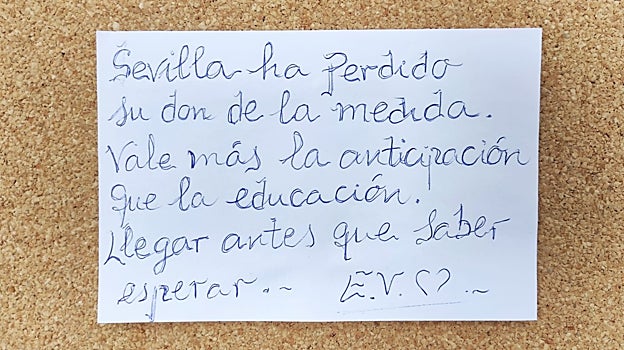 Sevilla ha perdido
su don de la medida.
Vale más la anticipación
que la educación.
Llegar antes que saber
esperar..~ E.V.